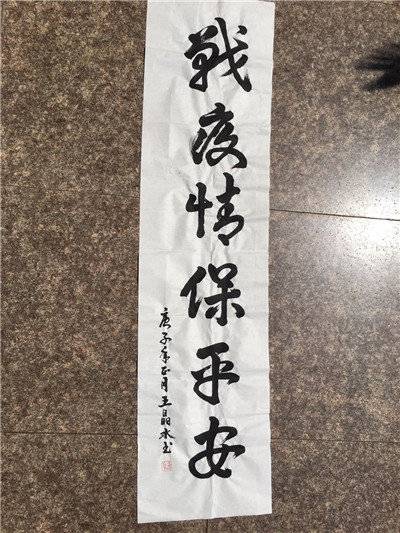 战疫情保平安
庚子年正月王晶水书